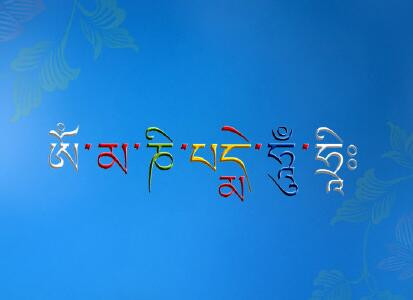 ཨོཾ་མ་ཎི་པདྨེ་ཧཱུྃ་ཧྲཱིཿ